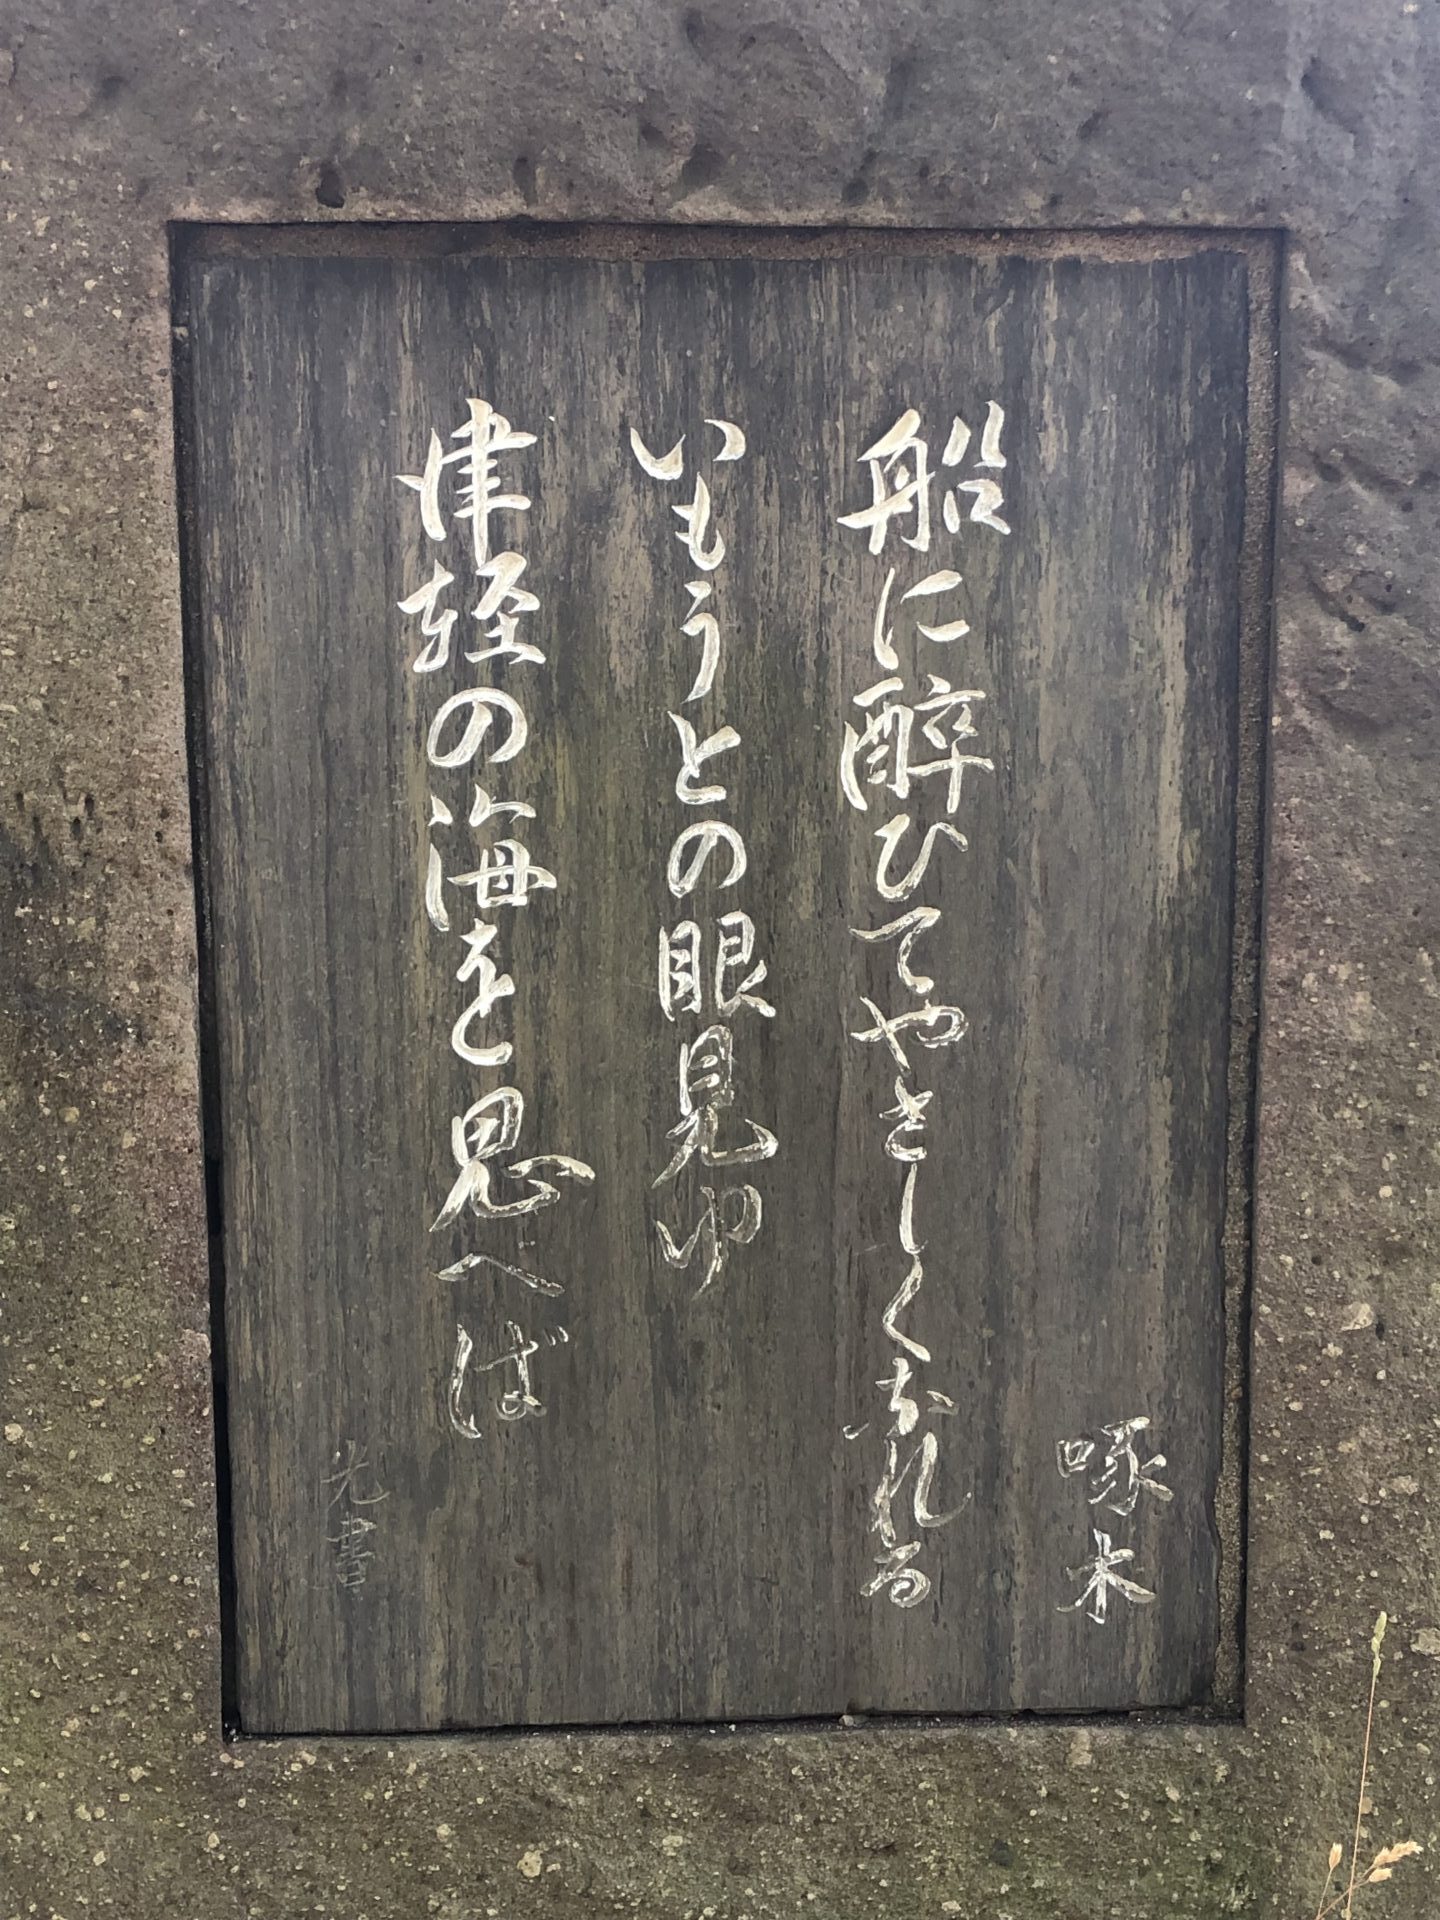 啄木
船に酔ひてやさしくなれる
いもうとの眼見ゆ
津軽の海を思へば
光書